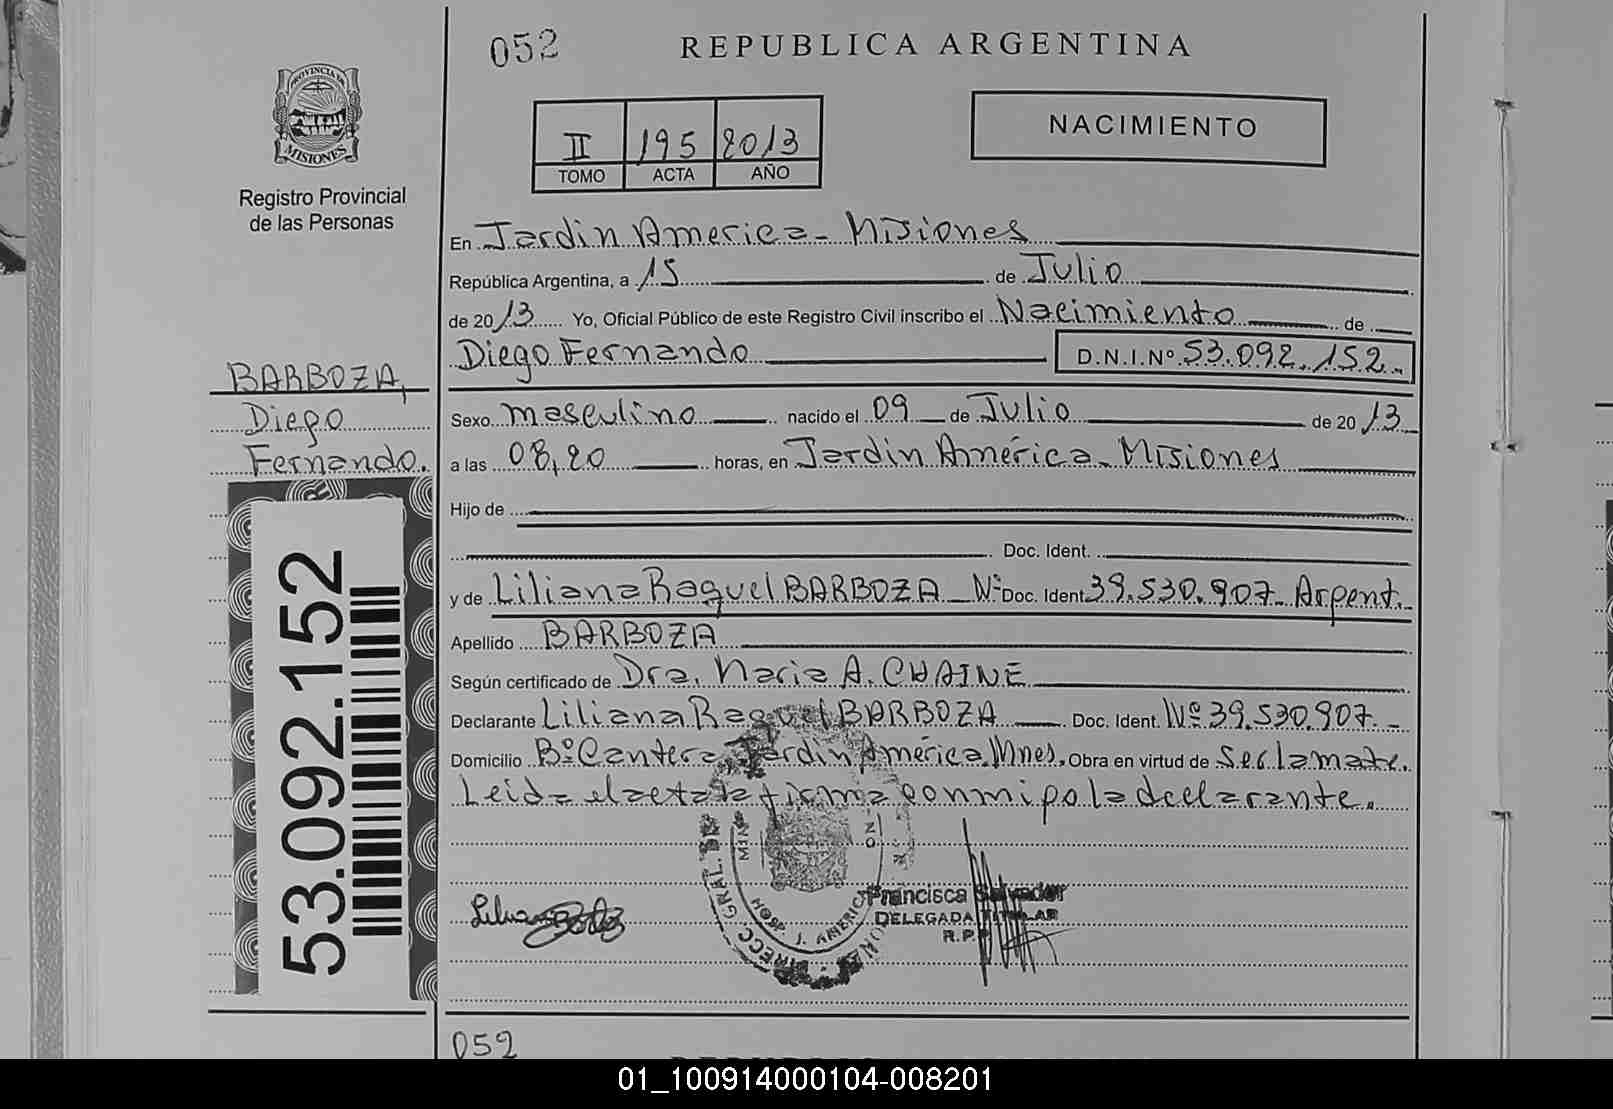 052
REPUBLICA ARGENTINA
PROVINCIA DE
MISIONES
Registro Provincial
de las Personas
II 195 2013
TOMO ACTA AÑO
NACIMIENTO
En Jardin America - Misiones
República Argentina, a 15 de Julio
de 2013 Yo, Oficial Público de este Registro Civil inscribo el Nacimiento de
Diego Fernando D.N.I.Nº 53.092.152.-
BARBOZA,
Diego
Fernando.
Sexo masculino nacido el 09 de Julio de 2013
a las 08,20 horas, en Jardin América - Misiones
Hijo de
Doc. Ident.
y de Liliana Raquel BARBOZA - Nº Doc. Ident 39.530.907- Argent.
Apellido BARBOZA
Según certificado de Dra. Maria A. CHAINE
Declarante Liliana Raquel BARBOZA Doc. Ident. Nº 39.530.907.-
Domicilio Bº Cantera, Jardin América, Mnes. Obra en virtud de Ser la madre.
Leida el acta la firma conmigo la declarante.
53.092.152
HOSP. J. AMERICA
Francisca Salvador
DELEGADA TITULAR
R.P.P
052
01_100914000104-008201